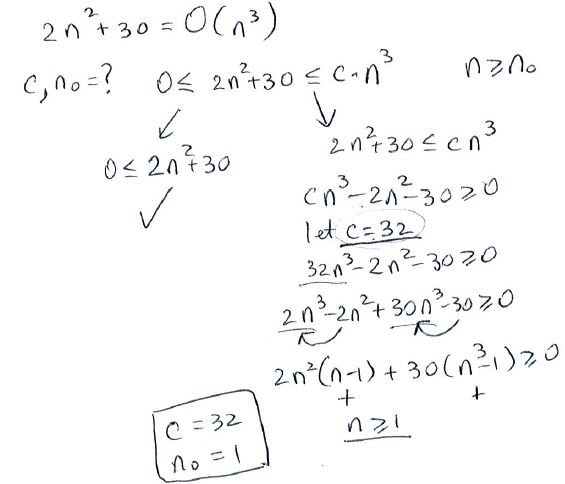 2n² + 30 = O(n³)
c, n₀ = ? 0 ≤ 2n² + 30 ≤ c · n³ n ≥ n₀
0 ≤ 2n² + 30
2n² + 30 ≤ cn³
cn³ - 2n² - 30 ≥ 0
let c = 32
32n³ - 2n² - 30 ≥ 0
2n³ - 2n² + 30n³ - 30 ≥ 0
2n²(n-1) + 30(n³-1) ≥ 0
+ +
n ≥ 1
c = 32
n₀ = 1